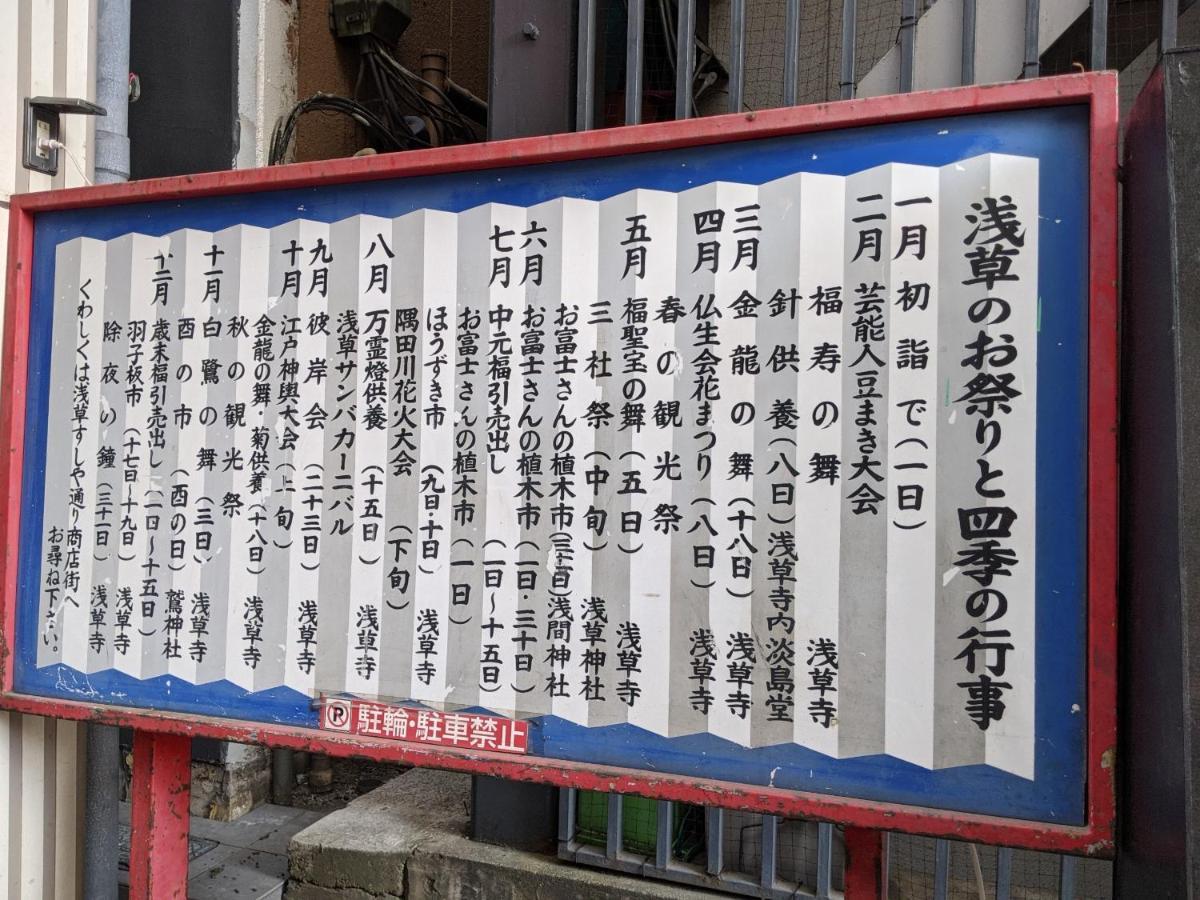 浅草のお祭りと四季の行事
一月 初詣で(一日)
二月 芸能人豆まき大会
福寿の舞 浅草寺
針供養(八日)浅草寺内淡島堂
三月 金龍の舞(十八日) 浅草寺
四月 仏生会花まつり(八日) 浅草寺
春の観光祭
五月 福聖宝の舞(五日) 浅草寺
三社祭(中旬) 浅草神社
お富士さんの植木市(三十一日)浅間神社
六月 お富士さんの植木市(一日・三十日)
七月 中元福引売出し(一日〜十五日)
お富士さんの植木市(一日)
ほうずき市(九日・十日) 浅草寺
隅田川花火大会(下旬)
八月 万霊燈供養(十五日) 浅草寺
浅草サンバカーニバル
九月 彼岸会(二十三日) 浅草寺
十月 江戸神輿大会(上旬)
金龍の舞・菊供養(十八日) 浅草寺
秋の観光祭
十一月 白鷺の舞(三日) 浅草寺
酉の市(酉の日) 鷲神社
十二月 歳末福引売出し(一日〜十五日)
羽子板市(十七日〜十九日) 浅草寺
除夜の鐘(三十一日) 浅草寺
くわしくは浅草すしや通り商店街へ
お尋ね下さい。
P 駐輪・駐車禁止